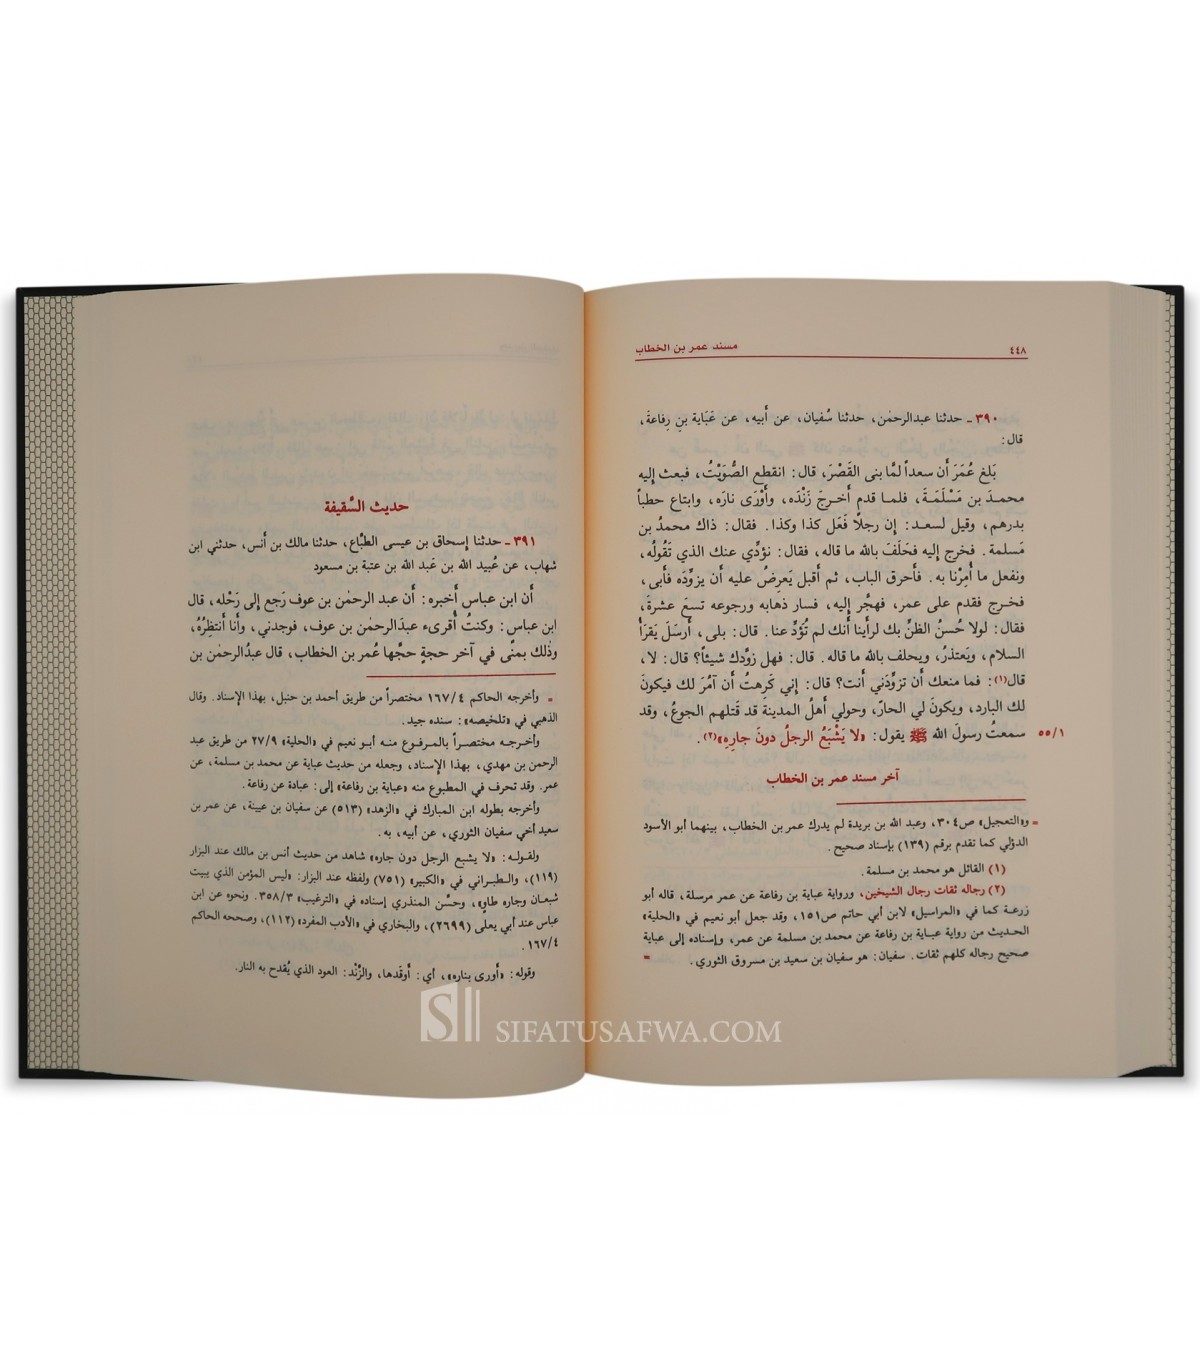 ٤٤٨
مسند عمر بن الخطاب
٣٩٠ ـ حدثنا عبدالرحمٰن، حدثنا سُفيان، عن أَبيه، عن عَبَاية بنِ رِفاعةَ،
قال:
بَلغ عُمَرَ أَن سعداً لمَّا بنى القَصْرَ، قال: انقطع الصُّوَيْتُ، فبعث إليه
محمدَ بن مَسْلَمَةَ، فلما قدم أَخرجَ زَنْدَه، وأَوْرَى نارَه، وابتاع حطباً
بدرهم، وقيل لسعد: إن رجلًا فَعَل كذا وكذا. فقال: ذاك محمدُ بن
مَسلمة. فخرج إليه فحَلَفَ بالله ما قاله، فقال: نؤدِّي عنك الذي تَقُولُه،
ونفعل ما أُمِرْنا به. فأحرق الباب، ثم أقبل يَعرِضُ عليه أَن يزوِّدَه فأَبى،
فخرج فقدم على عمر، فهجَّر إليه، فسار ذهابه ورجوعه تسعَ عشرةَ،
فقال: لولا حُسنُ الظنِّ بك لرأَينا أَنك لم تُؤدِّ عنا. قال: بلى، أَرسلَ يَقرَأُ
السلام، ويَعتذرُ، ويحلف بالله ما قاله. قال: فهل زوَّدك شيئاً؟ قال: لا،
قال(١): فما منعك أن تزوِّدَني أَنت؟ قال: إني كَرِهتُ أَن آمُرَ لك فيكونَ
لك البارد، ويكونَ لي الحارّ، وحولي أَهلُ المدينة قد قَتلهم الجوعُ، وقد
سمعتُ رسولَ الله ﷺ يقول: «لا يَشْبَعُ الرجلُ دونَ جارِهِ»(٢).
٥٥/١
آخر مسند عمر بن الخطاب
= و«التعجيل» ص٣٠٤، وعبد الله بن بريدة لم يدرك عمر بن الخطاب، بينهما أبو الأسود
الدؤلي كما تقدم برقم (١٣٩) بإسناد صحيح.
(١) القائل هو محمد بن مسلمة.
(٢) رجاله ثقات رجال الشيخين، ورواية عباية بن رفاعة عن عمر مرسلة، قاله أبو
زرعة كما في «المراسيل» لابن أبي حاتم ص١٥١، وقد جعل أبو نعيم في «الحلية»
الحديث من رواية عباية بن رفاعة عن محمد بن مسلمة عن عمر، وإسناده إلى عباية
صحيح رجاله كلهم ثقات. سفيان: هو سفيان بن سعيد بن مسروق الثوري. =
حديث السَّقيفة
٣٩١ ـ حدثنا إسحاق بن عيسى الطبَّاع، حدثنا مالك بن أَنس، حدثني ابن
شهاب، عن عُبيد الله بن عَبد الله بن عتبة بن مسعود
أَن ابن عباس أَخبره: أَن عبد الرحمٰن بن عوف رَجع إلى رَحْله، قال
ابن عباس: وكنتُ أُقرىء عبدَالرحمٰن بن عوف، فوجدني، وأَنا أَنتظِرُهُ،
وذٰلك بمنًى في آخر حجةٍ حجَّها عُمر بن الخطاب، قال عبدُالرحمٰن بن
= وأخرجه الحاكم ١٦٧/٤ مختصراً من طريق أحمد بن حنبل، بهذا الإسناد. وقال
الذهبي في «تلخيصه»: سنده جيد.
وأخرجه مختصراً بالمرفوع منه أبو نعيم في «الحلية» ٢٧/٩ من طريق عبد
الرحمن بن مهدي، بهذا الإسناد، وجعله من حديث عباية عن محمد بن مسلمة، عن
عمر. وقد تحرف في المطبوع منه «عباية بن رفاعة» إلى: عبادة عن رفاعة.
وأخرجه بطوله ابن المبارك في «الزهد» (٥١٣) عن سفيان بن عيينة، عن عمر بن
سعيد أخي سفيان الثوري، عن أبيه، به.
ولقوله: «لا يشبع الرجل دون جاره» شاهد من حديث أنس بن مالك عند البزار
(١١٩)، والطبراني في «الكبير» (٧٥١) ولفظه عند البزار: «ليس المؤمن الذي يبيت
شبعان وجاره طاوٍ»، وحسَّن المنذري إسناده في «الترغيب» ٣٥٨/٣. ونحوه عن ابن
عباس عند أبي يعلى (٢٦٩٩)، والبخاري في «الأدب المفرد» (١١٢)، وصححه الحاكم
١٦٧/٤.
وقوله: «أورى بناره»، أي: أوقدها، والزَّنْد: العود الذي يُقدح به النار.
SIFATUSAFWA.COM